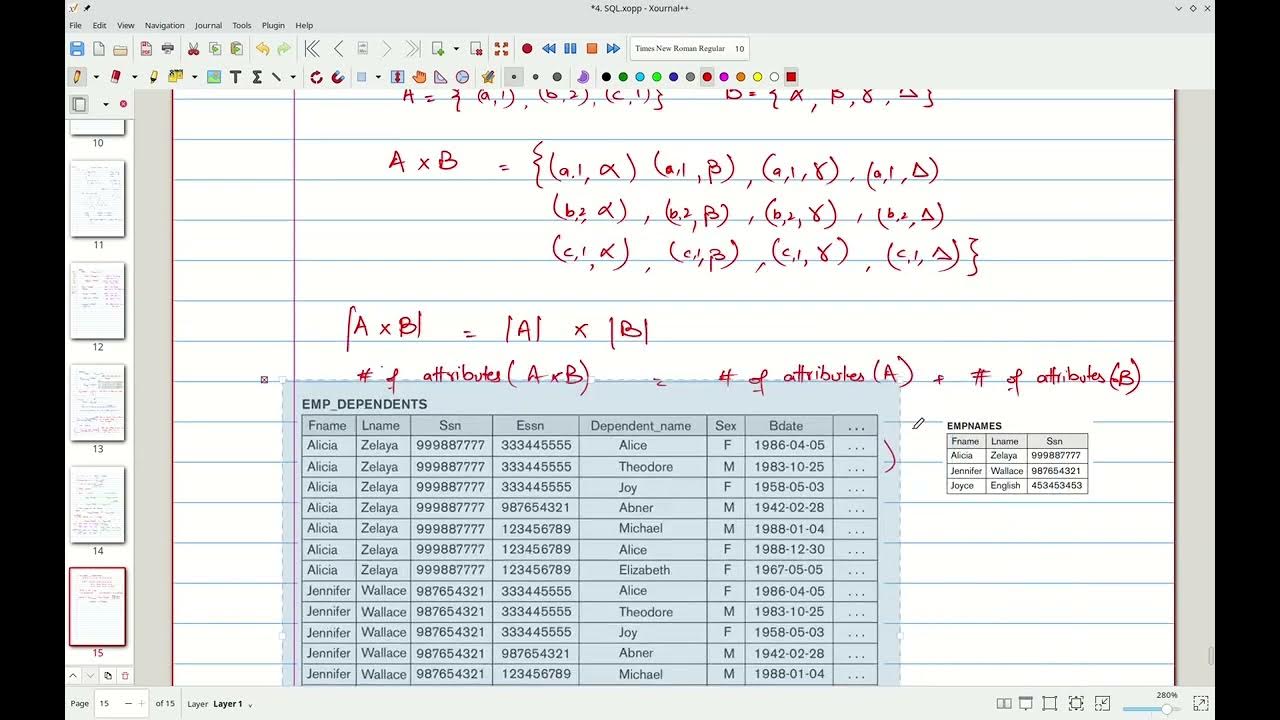 *4. SQL.xopp - Xournal++
File Edit View Navigation Journal Tools Plugin Help
Times New Roman Regular 10
A = { (a,1), (b,2), (c,1)} B = { α, β, γ, Δ }
A × B = {(a,1, α) (a,1, β), (a,1, γ), (a,1, Δ)
(b,2, α), (b,2, β), (b,2, γ), (b,2, Δ)
(c,1, α), (c,1, β), (c,1, γ), (c,1, Δ)}
|A × B| = |A| × |B|
# of attributes (A × B) = # of attributes (A) + # of attributes (B)
EMP_DEPENDENTS
Fname Lname Ssn Essn Dependent_name Sex Bdate ...
Alicia Zelaya 999887777 333445555 Alice F 1986-04-05 ...
Alicia Zelaya 999887777 333445555 Theodore M 1983-10-25 ...
Alicia Zelaya 999887777 333445555 Joy F 1958-05-03 ...
Alicia Zelaya 999887777 987654321 Abner M 1942-02-28 ...
Alicia Zelaya 999887777 123456789 Michael M 1988-01-04 ...
Alicia Zelaya 999887777 123456789 Alice F 1988-12-30 ...
Alicia Zelaya 999887777 123456789 Elizabeth F 1967-05-05 ...
Jennifer Wallace 987654321 333445555 Alice F 1986-04-05 ...
Jennifer Wallace 987654321 333445555 Theodore M 1983-10-25 ...
Jennifer Wallace 987654321 333445555 Joy F 1958-05-03 ...
Jennifer Wallace 987654321 987654321 Abner M 1942-02-28 ...
Jennifer Wallace 987654321 123456789 Michael M 1988-01-04 ...
EMPNAMES
Fname Lname Ssn
Alicia Zelaya 999887777
Jennifer Wallace 987654321
Joyce English 453453453
10
11
12
13
14
15
Page 15 of 15 Layer Layer 1
280%